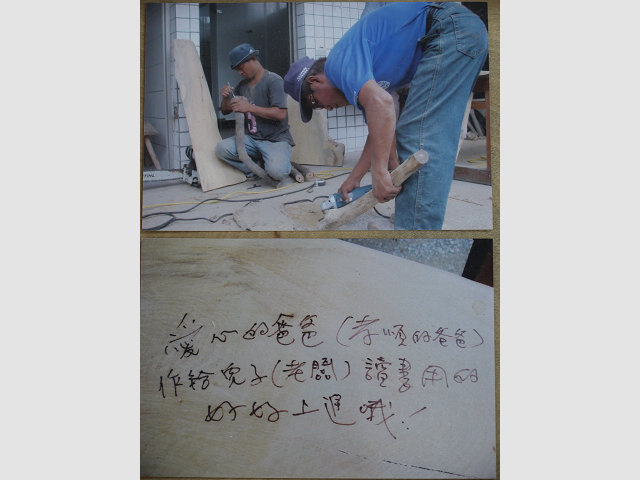 愛心的爸爸(孝順的爸爸)
作給兒子(老闆)讀書用的
好好上進哦!